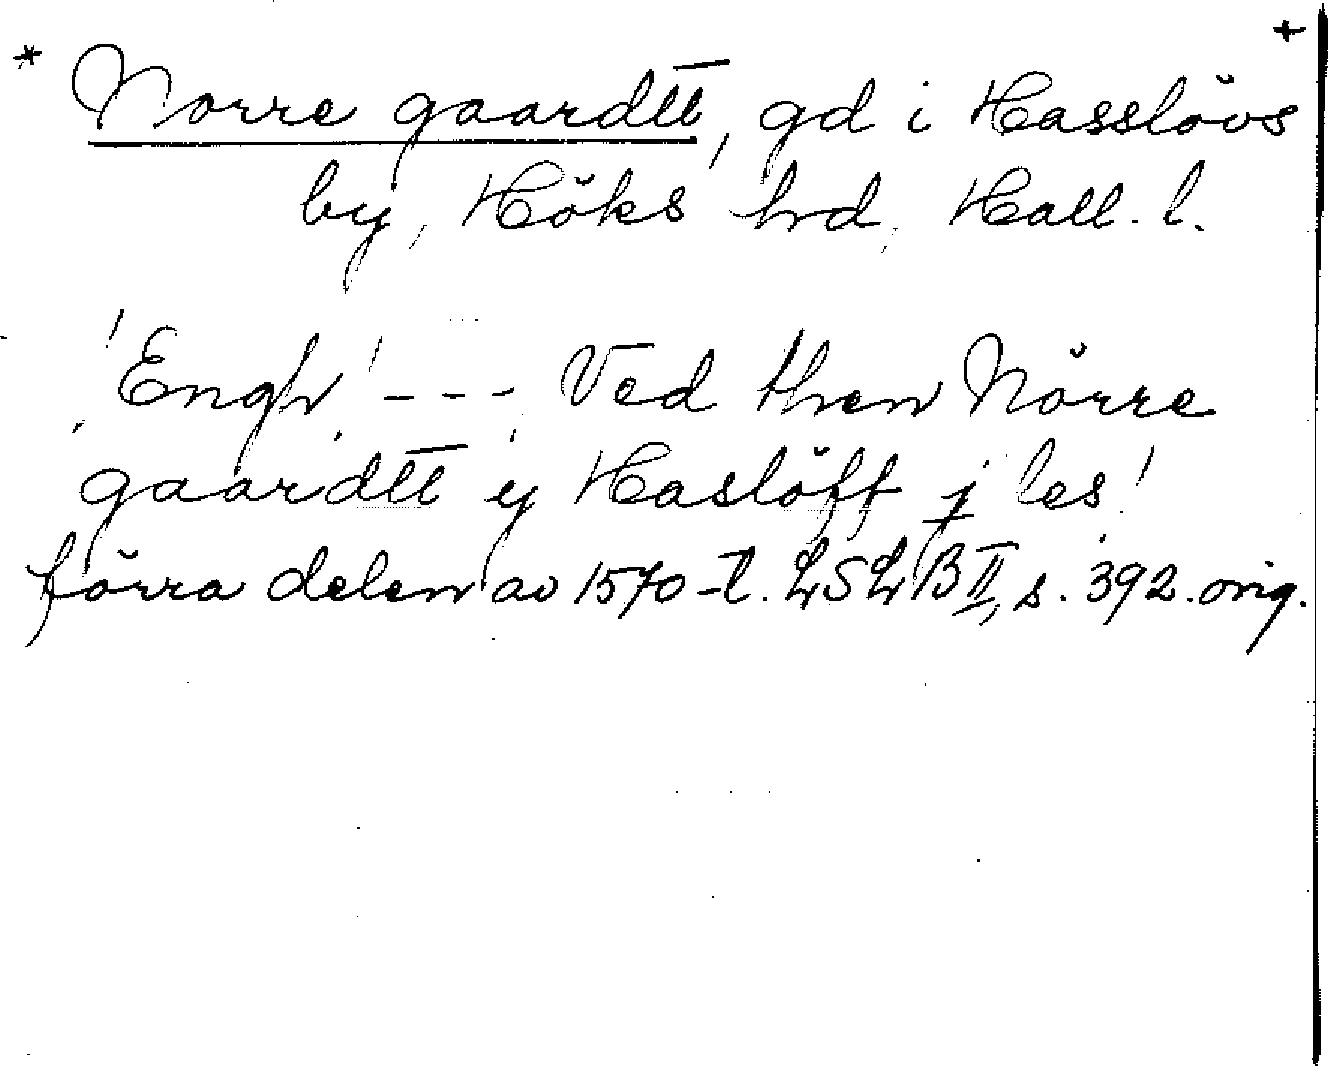 * Norre gaardtt̅, gd i Hasslövs +
by, Höks hrd, Hall. l.
'Engh' --- Ved then Nörre
gaardtt̅ y Haslöff j les'
förra delen av 1570-t. LSLB II, s. 392. orig.